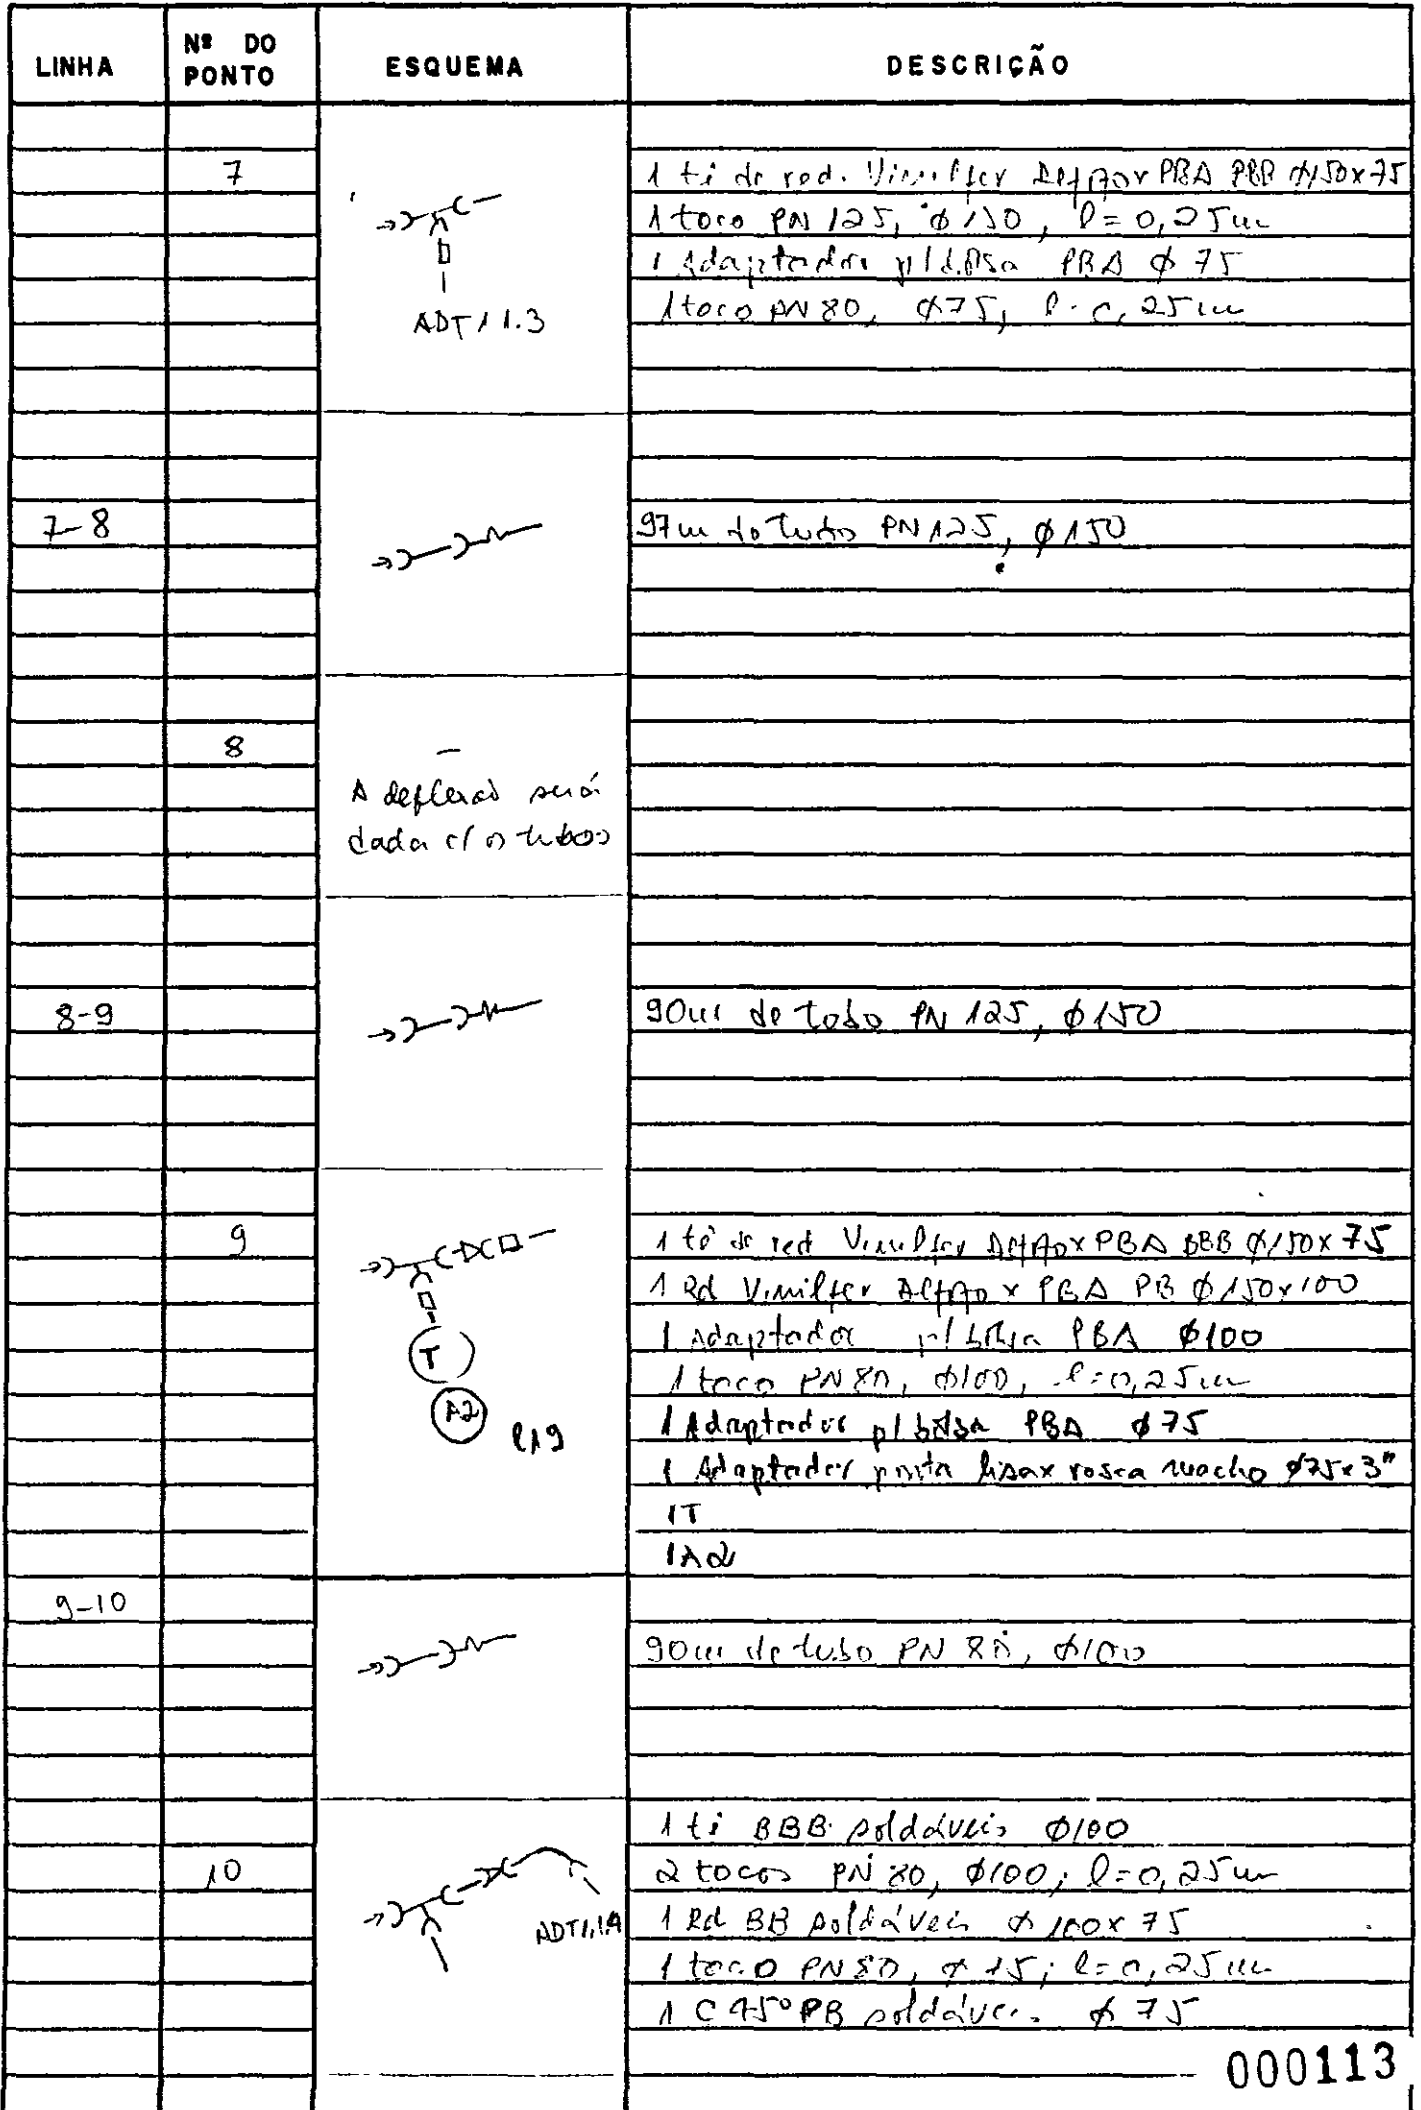 LINHA
Nº DO PONTO
ESQUEMA
DESCRIÇÃO
7
ADT11.3
1 tê de red. Vinilfer DEFOFO x PBA 150x75
1 toco PN 125, ø 150, l = 0,25m
1 Adaptador p/ bolsa PBA ø 75
1 toco PN 80, ø75, l = 0,25m
7-8
97m de tubo PN 125, ø150
8
–
A deflexão será
dada c/ os tubos
8-9
90m de tubo PN 125, ø150
9
T
A2
1 tê de red Vinilfer x PBA BBB ø150x75
1 Rd Vinilfer x PBA PB ø150x100
1 Adaptador p/ bolsa PBA ø100
1 toco PN 80, ø100, l = 0,25m
1 Adaptador p/ bolsa PBA ø75
1 Adaptador ponta lisa x rosca macho ø75x3"
1T
1A2
9-10
90m de tubo PN 80, ø100
10
1 tê BBB soldáveis ø100
2 tocos PN 80, ø100; l = 0,25m
1 Rd BB soldáveis ø100x75
ADT1.1.4
1 toco PN 80, ø75; l = 0,25m
1 C 45° PB soldáveis ø75
000113